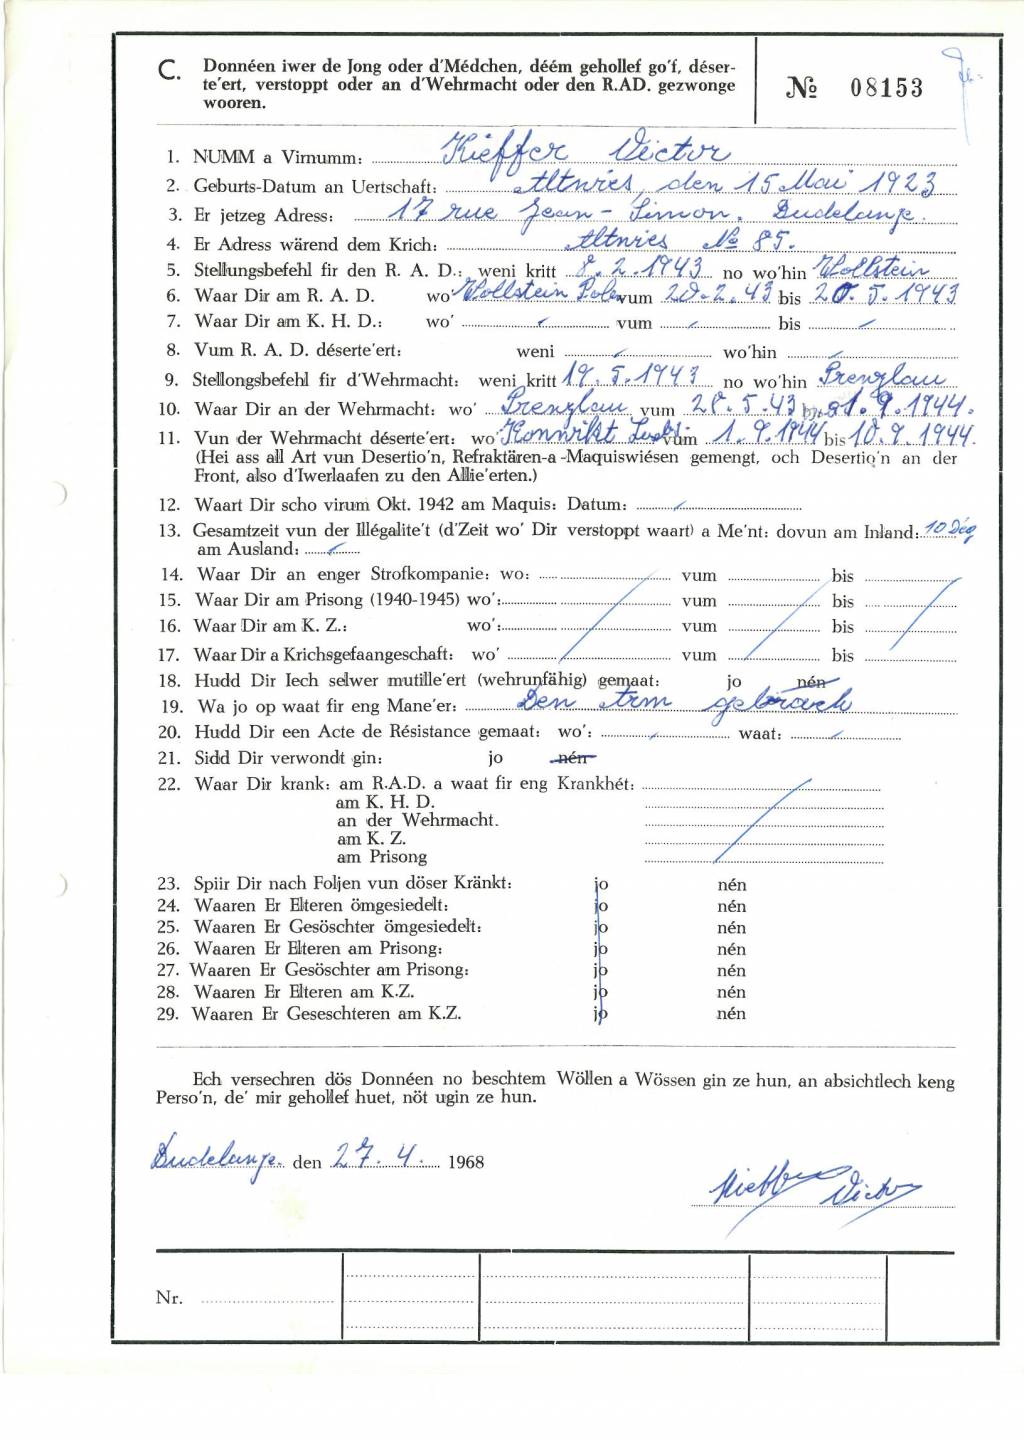 C. Donnéen iwer de Jong oder d'Médchen, déém gehollef go'f, déser-
te'ert, verstoppt oder an d'Wehrmacht oder den R.AD. gezwonge
wooren.
№ 08153
1. NUMM a Virnumm: Kieffer Victor
2. Geburts-Datum an Uertschaft: Altwies, den 15 Mai 1923
3. Er jetzeg Adress: 17 rue Jean-Simon. Dudelange.
4. Er Adress wärend dem Krich: Altwies № 85.
5. Stellungsbefehl fir den R. A. D.: weni kritt 8.2.1943 no wo'hin Wollstein
6. Waar Dir am R. A. D. wo' Wollstein Polen vum 20.2.43 bis 20.5.1943
7. Waar Dir am K. H. D.: wo' vum bis
8. Vum R. A. D. déserte'ert: weni wo'hin
9. Stellongsbefehl fir d'Wehrmacht: weni kritt 19.5.1943 no wo'hin Prenzlau
10. Waar Dir an der Wehrmacht: wo' Prenzlau vum 28.5.43 bis 31.9.1944.
11. Vun der Wehrmacht déserte'ert: wo Konvikt vum 1.9.1944 bis 10.9.1944.
(Hei ass all Art vun Desertio'n, Refraktären-a-Maquiswiésen gemengt, och Desertio'n an der
Front, also d'Iwerlaafen zu den Allie'erten.)
12. Waart Dir scho virum Okt. 1942 am Maquis: Datum:
13. Gesamtzeit vun der Illégalite't (d'Zeit wo' Dir verstoppt waart) a Me'nt: dovun am Inland: 10 Deg
am Ausland:
14. Waar Dir an enger Strofkompanie: wo: vum bis
15. Waar Dir am Prisong (1940-1945) wo': vum bis
16. Waar Dir am K. Z.: wo': vum bis
17. Waar Dir a Krichsgefaangeschaft: wo' vum bis
18. Hudd Dir Iech selwer mutille'ert (wehrunfähig) gemaat: jo nén
19. Wa jo op waat fir eng Mane'er: Den Arm gebrach
20. Hudd Dir een Acte de Résistance gemaat: wo': waat:
21. Sidd Dir verwondt gin: jo nén
22. Waar Dir krank: am R.A.D. a waat fir eng Krankhét:
am K. H. D.
an der Wehrmacht.
am K. Z.
am Prisong
23. Spiir Dir nach Foljen vun döser Kränkt: jo nén
24. Waaren Er Elteren ömgesiedelt: jo nén
25. Waaren Er Gesöschter ömgesiedelt: jo nén
26. Waaren Er Elteren am Prisong: jo nén
27. Waaren Er Gesöschter am Prisong: jo nén
28. Waaren Er Elteren am K.Z. jo nén
29. Waaren Er Geseschteren am K.Z. jo nén
Ech versechren dös Donnéen no beschtem Wöllen a Wössen gin ze hun, an absichtlech keng
Perso'n, de' mir gehollef huet, nöt ugin ze hun.
Dudelange. den 27.4. 1968
Kieffer Victor
Nr.